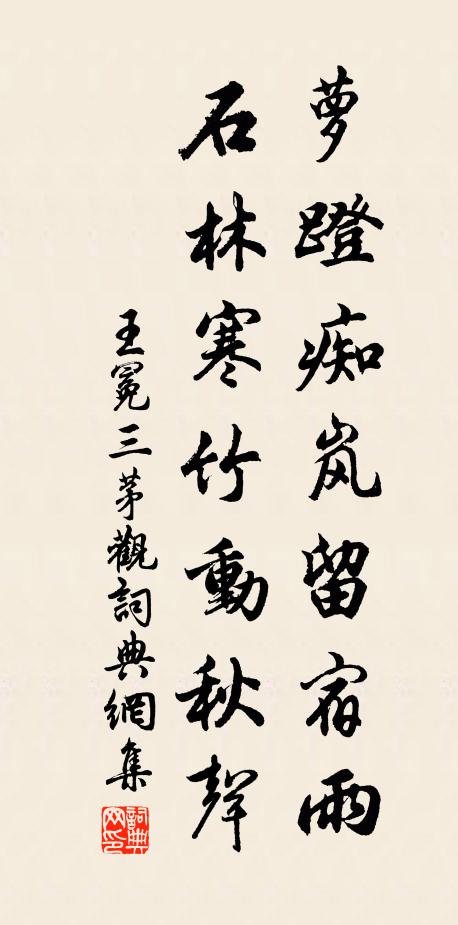 萝蹬痴岚留宿雨
石林寒竹動秋聲
王冕三茅觀詞典網集
詞典網印